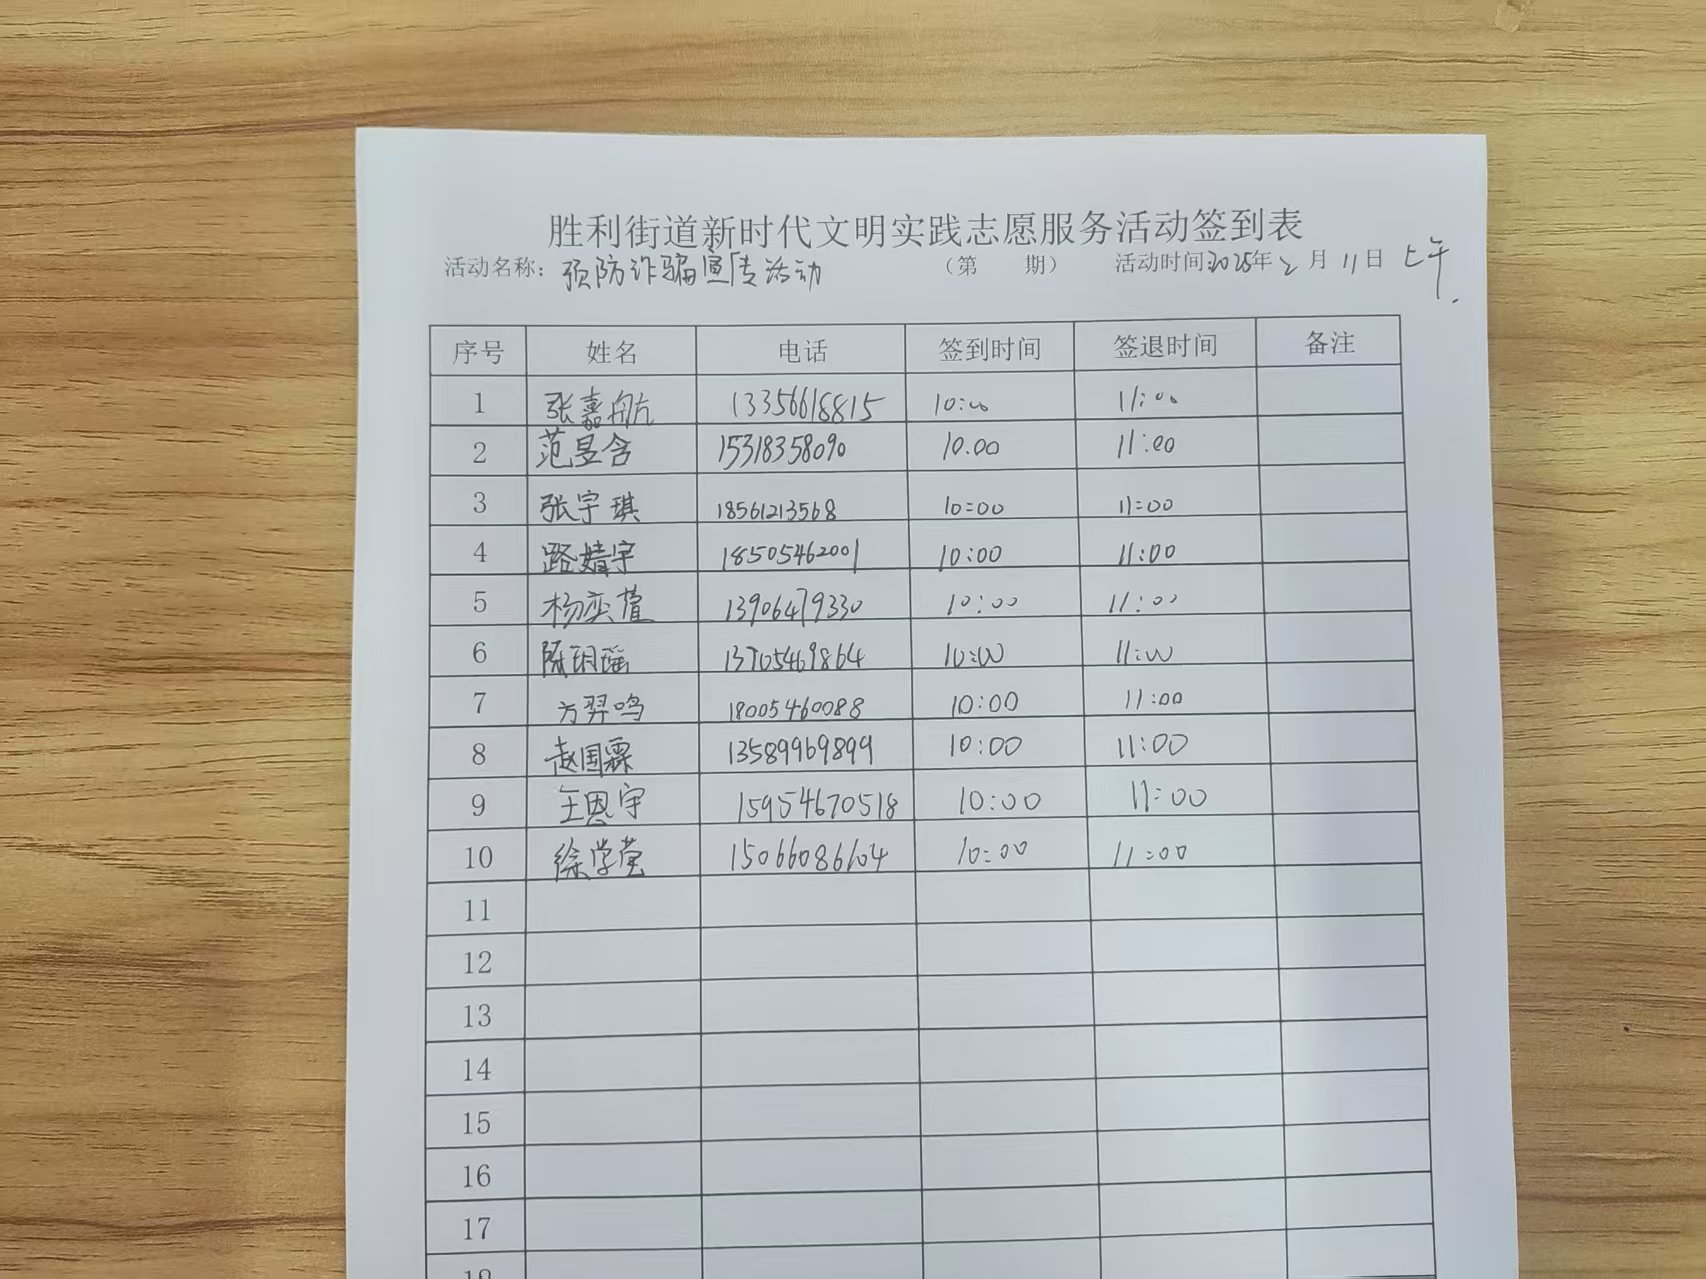 胜利街道新时代文明实践志愿服务活动签到表
活动名称：预防诈骗宣传活动 （第 期） 活动时间2025年2月11日 上午
序号 姓名 电话 签到时间 签退时间 备注
1 张嘉航 13356618815 10:00 11:00
2 范昱含 15318358090 10.00 11:00
3 张宇琪 18561213568 10:00 11:00
4 路婧宇 18505462001 10:00 11:00
5 杨奕萱 13906479330 10:00 11:00
6 陈玥瑶 13705469864 10:00 11:00
7 方羿鸣 18005460088 10:00 11:00
8 赵国霖 13589969899 10:00 11:00
9 王恩宇 15954670518 10:00 11:00
10 徐学莹 15066086104 10:00 11:00
11
12
13
14
15
16
17
18